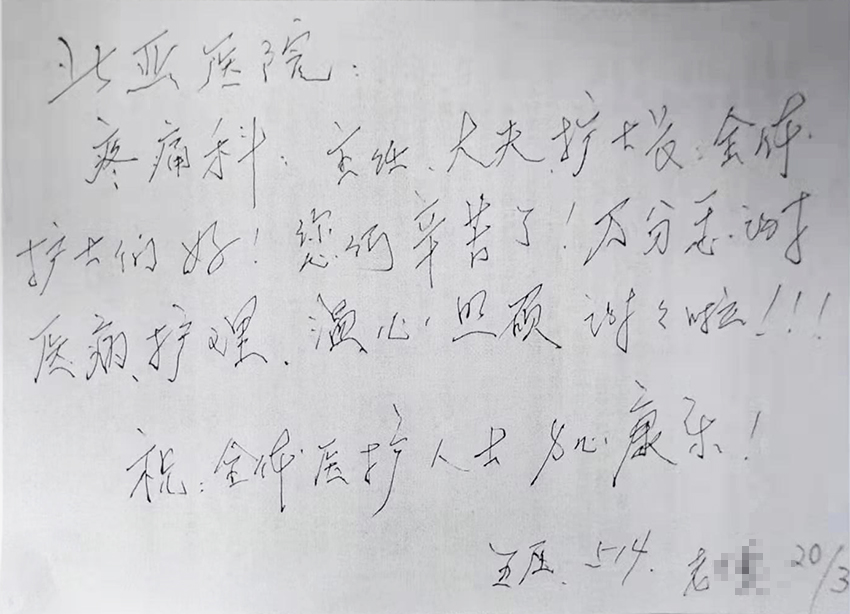 北亚医院：
疼痛科：主任、大夫、护士长、全体
护士们好！您们辛苦了！万分感谢
医病、护理、温心照顾 谢々啦！！！
祝：全体医护人士 身心康乐！
514. 老 20/3